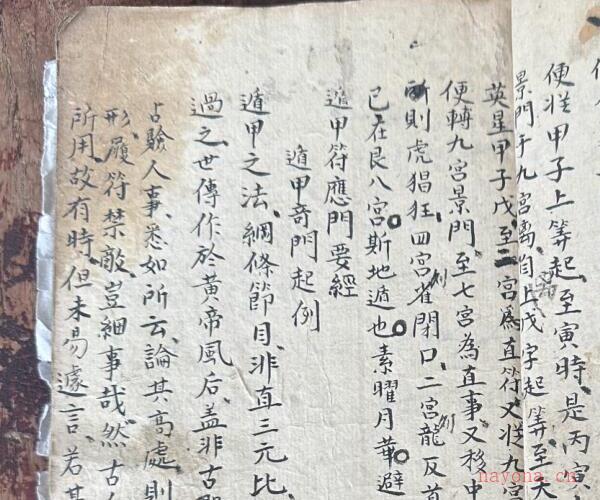 便從甲子上筭起至寅時是丙寅
景門于九宮離自上戊字起筭至
英星甲子戊至二宮為直符又從九宮
便轉九宮景門至七宮為直事又移中
所則虎猖狂四宮雀閉口二宮龍反首
已在艮八宮斯地遁也素曜月華避
遁甲符應門要經
遁甲奇門起例
遁甲之法綱條節目非直三元比
過之世傳作於黃帝風后盖非古
占驗人事悉如所云論其高處則
形履符禁敵豈細事哉然古
所用故有時但未易遽言若其
nayona.cn